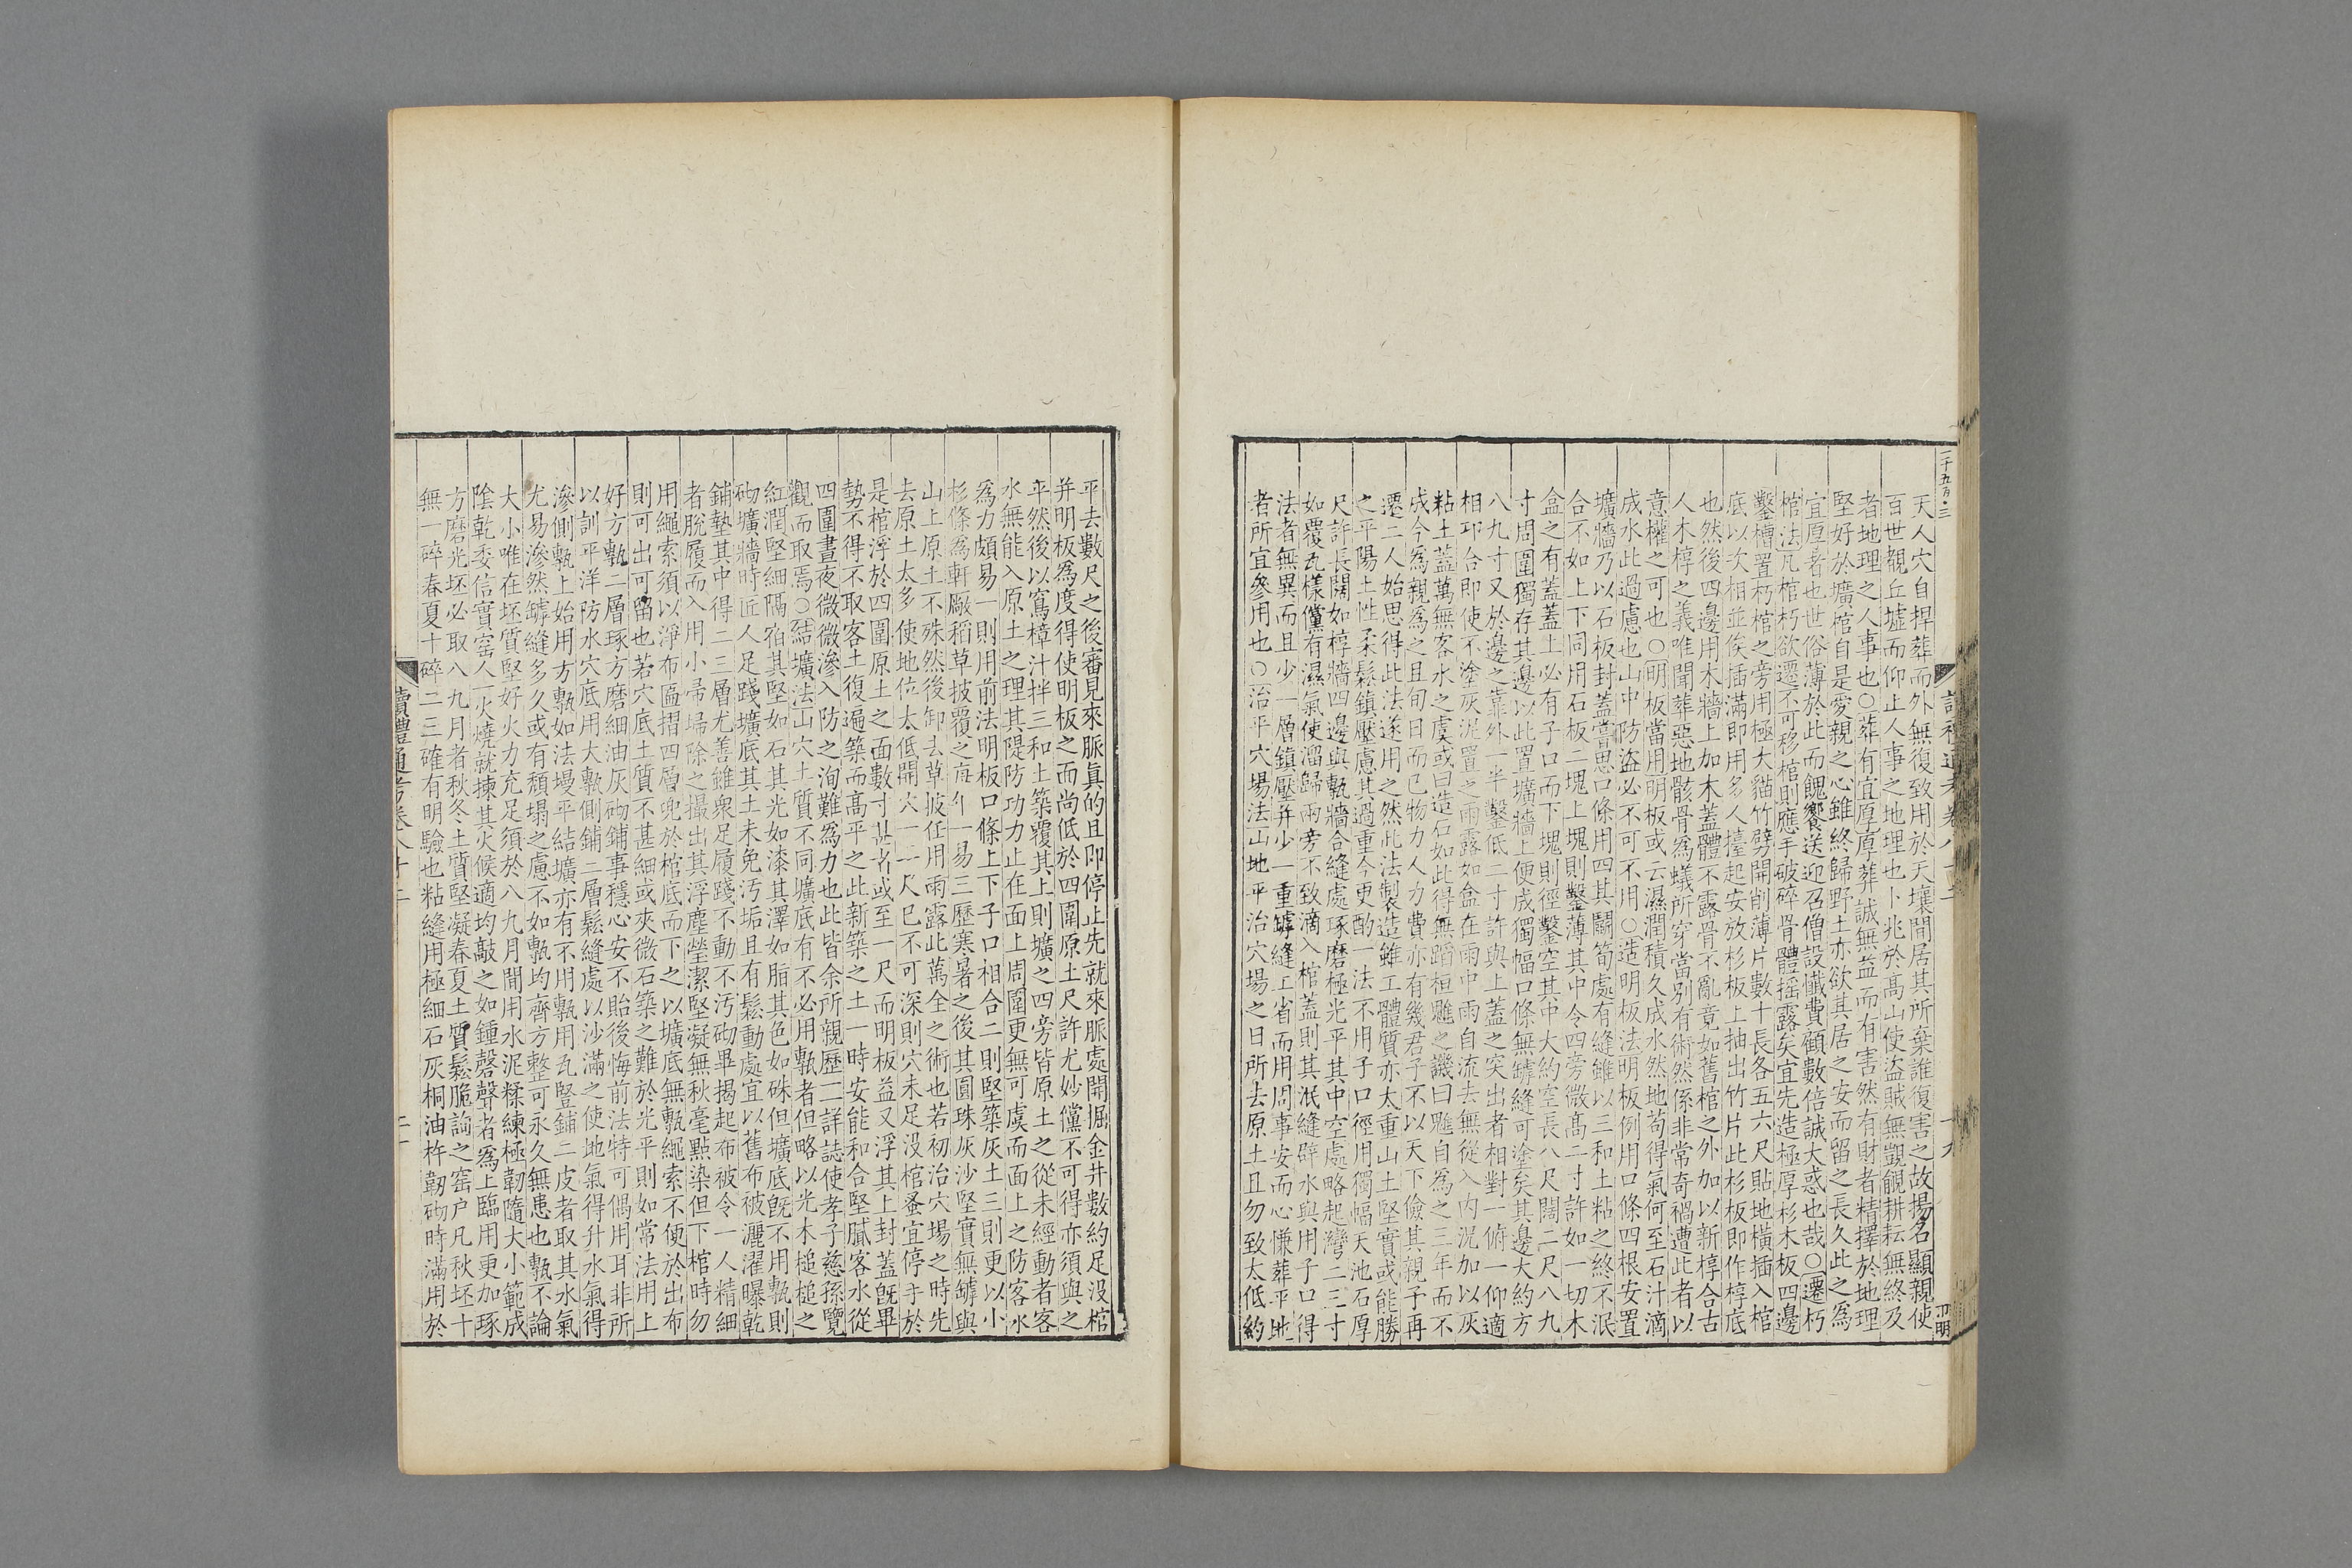 天人穴自捍葬而外無復致用於天壤間居其所棄誰復害之故揚名顯親使
百世覩丘墟而仰止人事之地理也卜兆於高山使盜賊無覬覦耕耘無終及
者地理之人事也○葬有宜厚厚葬誠無益而有害然有財者精擇於地理
堅好於壙棺自是愛親之心雖終歸野土亦欲其居之安而留之長久此之為
宜厚者也世俗薄於此而餽饗送迎召僧設懺費顧數倍誠大惑也哉○遷朽
棺法凡棺朽欲遷不可移棺則應手破碎骨體摇露矣宜先造極厚杉木板四邊
鑿槽置朽棺之旁用極大貓竹劈開削薄片數十長各五六尺貼地橫插入棺
底以次相並俟插滿即用多人擡起安放杉板上抽出竹片此杉板即作椁底
也然後四邊用木牆上加木蓋體不露骨不亂竟如舊棺之外加以新椁合古
人木椁之義唯聞葬惡地骸骨為蟻所穿當別有術然係非常奇禍遭此者以
意權之可也○明板當用明板或云濕潤積久成水然地苟得氣何至石汁滴
成水此過慮也山中防盜必不可不用○造明板法明板例用口條四根安置
壙牆乃以石板封蓋嘗思口條用四其鬬筍處有縫雖以三和土粘之終不泯
合不如上下同用石板二塊上塊則鑿薄其中令四旁微高二寸許如一切木
盒之有蓋蓋上必有子口而下塊則徑鑿空其中大約空長八尺闊二尺八九
寸周圍獨存其邊以此置壙牆上便成獨幅口條無罅縫可塗矣其邊大約方
八九寸又於邊之靠外一半鑿低二寸許與上蓋之突出者相對一俯一仰適
相卭合即使不塗灰泥置之雨露如盒在雨中雨自流去無從入内況加以灰
粘土蓋萬無客水之虞或曰造石如此得無蹈桓魋之譏曰魋自為之三年而不
成今為親為之且旬日而已物力人力費亦有幾君子不以天下儉其親予再
遷二人始思得此法遂用之然此法製造雖工體質亦太重山土堅實或能勝
之平陽土性柔鬆鎮壓慮其過重今更酌一法不用子口徑用獨幅天池石厚
尺許長闊如椁牆四邊與甎牆合縫處琢磨極光平其中空處略起灣二三寸
如覆瓦樣儻有濕氣使溜歸兩旁不致滴入棺蓋則其泯縫辟水與用子口得
法者無異而且少一層鎮壓并少一重罅縫工省而用周事安而心慊葬平地
者所宜參用也○治平穴場法山地平治穴場之日所去原土且勿致太低約
平去數尺之後審見來脈真的且即停止先就來脈處開掘金井數約足没棺
并明板為度得使明板之面尚低於四圍原土尺許尤妙儻不可得亦須與之
平然後以窵樟汁拌三和土築覆其上則壙之四旁皆原土之從未經動者客
水無能入原土之理其隄防功力止在面上周圍更無可虞而面上之防客水
為力頗易一則用前法明板口條上下子口相合二則堅築灰土三則更以小
杉條為軒廠稻草披覆之每年一易三歷寒暑之後其圓珠灰沙堅實無罅與
山上原土不殊然後卸去草披任用雨露此萬全之術也若初治穴場之時先
去原土太多使地位太低開穴一二尺已不可深則穴未足没棺蚤宜停手於
是棺浮於四圍原土之面數寸甚者或至一尺而明板益又浮其上封蓋既畢
勢不得不取客土復遍築而高平之此新築之土一時安能和合堅膩客水從
四圍晝夜微微滲入防之洵難為力也此皆余所親歷一一詳誌使孝子慈孫覽
觀而取焉○結壙法山穴土質不同壙底有不必用甎者但略以光木槌槌之
紅潤堅細隔宿其堅如石其光如漆其澤如脂其色如硃但壙底既不用甎則
砌壙牆時匠人足踐壙底其土未免汚垢且有鬆動處宜以舊布被灑濯曝乾
鋪墊其中得二三層尤善雖衆足履踐不動不汚砌畢揭起布被令一人精細
者脫履而入用小帚埽除之撮出其浮塵瑩潔堅凝無秋毫點染但下棺時勿
用繩索須以淨布匾摺四層兜於棺底而下之以壙底無甎繩索不便於出布
則可出可留也若穴底土質不甚細或夾微石築之難於光平則如常法用上
好方甎二層琢方磨細油灰砌鋪事穩心安不貽後悔前法特可偶用耳非所
以訓平洋防水穴底用大甎側鋪二層鬆縫處以沙滿之使地氣得升水氣得
滲側甎上始用方甎如法墁平結壙亦有不用甎用瓦豎鋪二皮者取其水氣
尤易滲然罅縫多久或有頹塌之慮不如甎均齊方整可永久無患也甎不論
大小唯在坯質堅好火力充足須於八九月間用水泥糅練極韌隨大小範成
陰乾委信實窑人一火燒就揀其火候適均敲之如鍾磬聲者為上臨用更加琢
方磨光坯必取八九月者秋冬土質堅凝春夏土質鬆脆詢之窑户凡秋坯十
無一碎春夏十碎二三確有明驗也粘縫用極細石灰桐油杵韌砌時滿用於
讀禮通考卷八十二